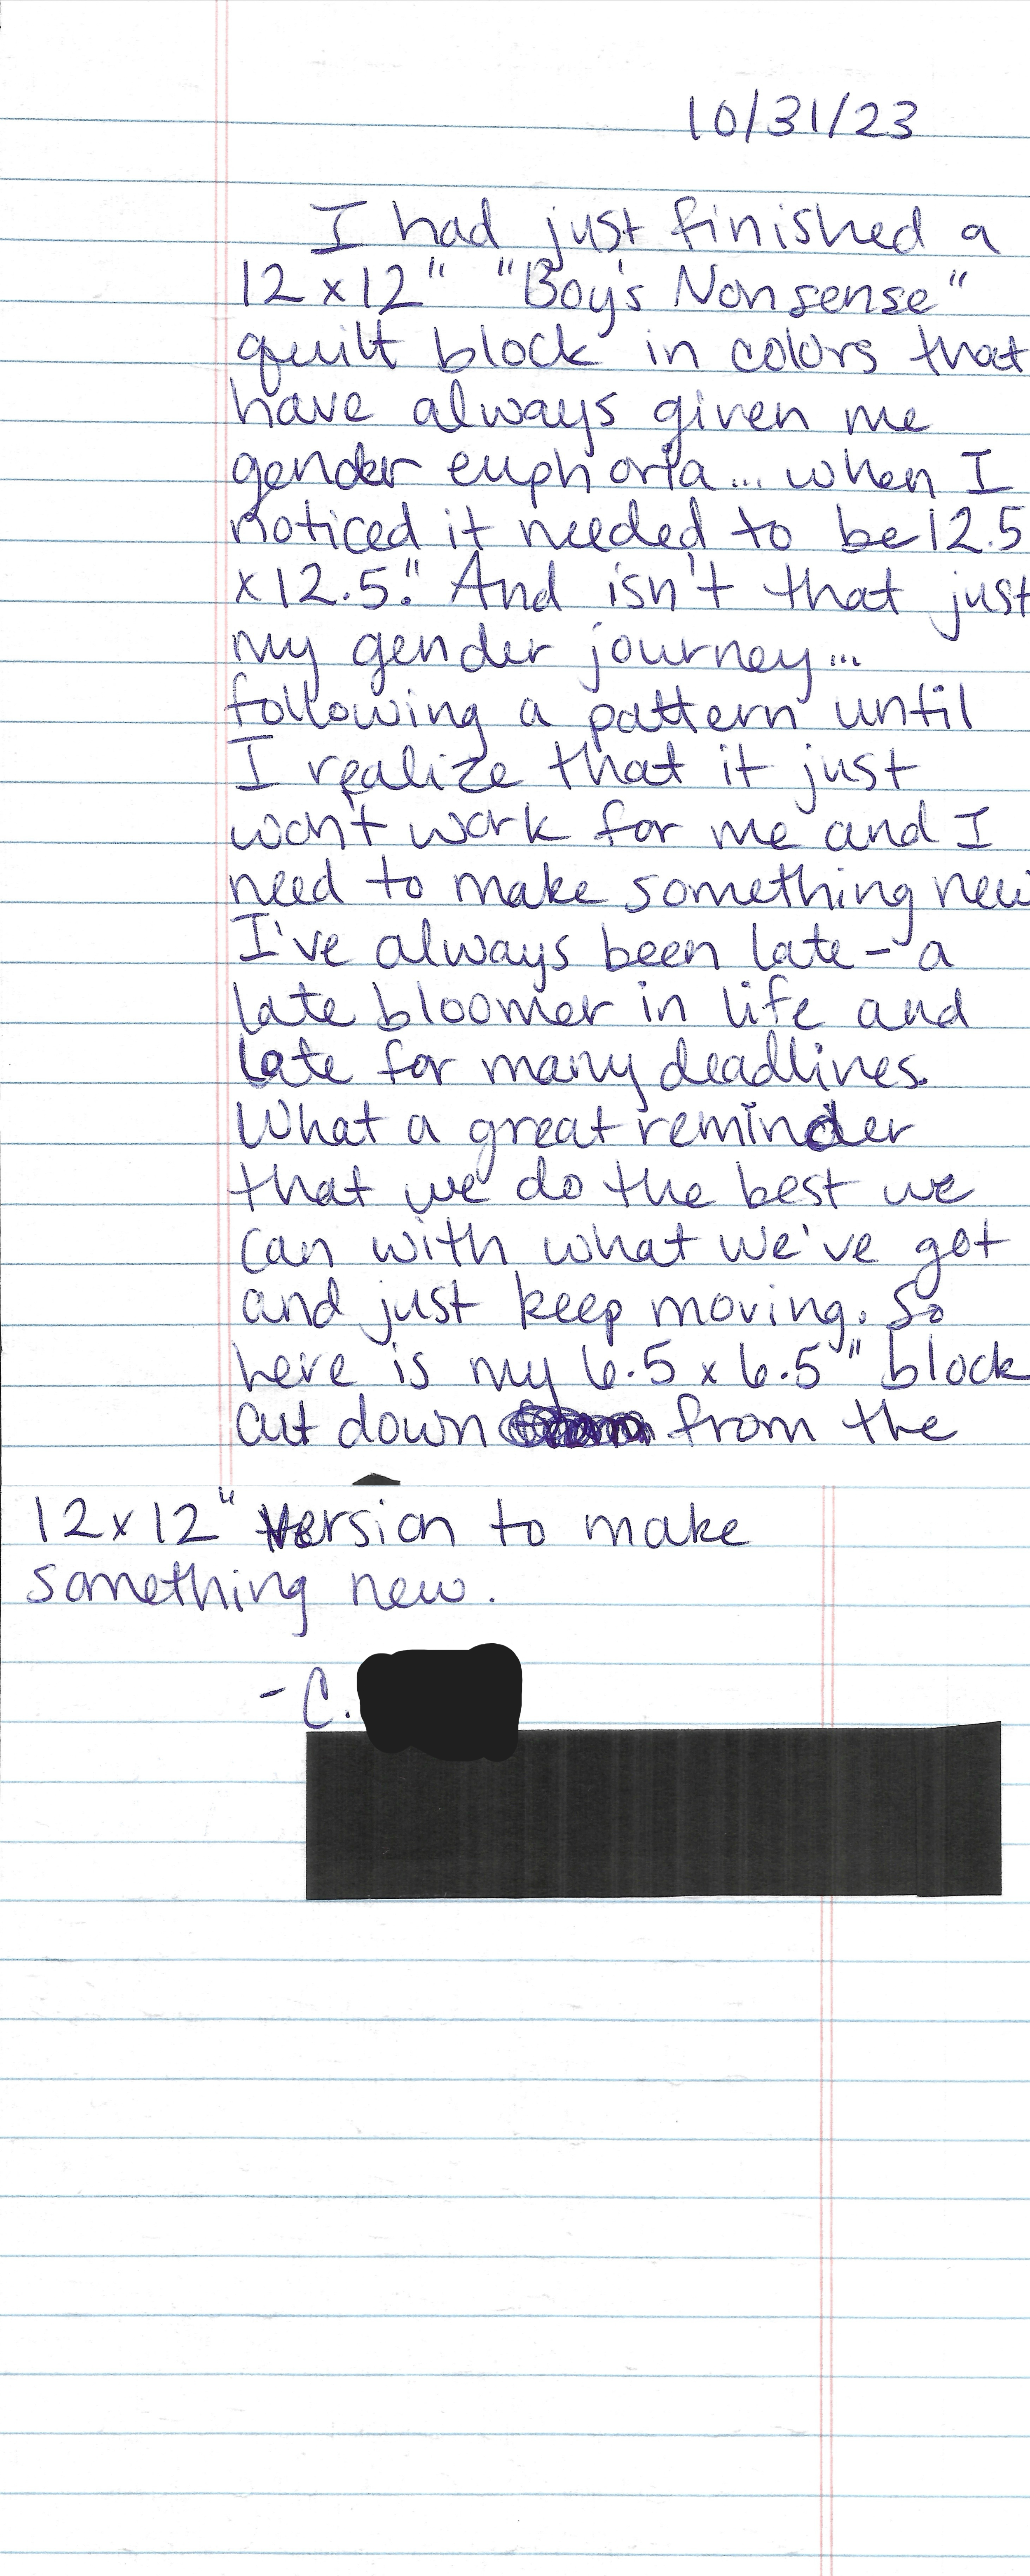 10/31/23
I had just finished a
12 x 12" "Boy's Nonsense"
quilt block in colors that
have always given me
gender euphoria... when I
noticed it needed to be 12.5
x 12.5". And isn't that just
my gender journey...
following a pattern until
I realize that it just
won't work for me and I
need to make something new
I've always been late - a
late bloomer in life and
late for many deadlines.
What a great reminder
that we do the best we
can with what we've got
and just keep moving. So
here is my 6.5 x 6.5" block
cut down from the
12 x 12" version to make
something new.
- C.